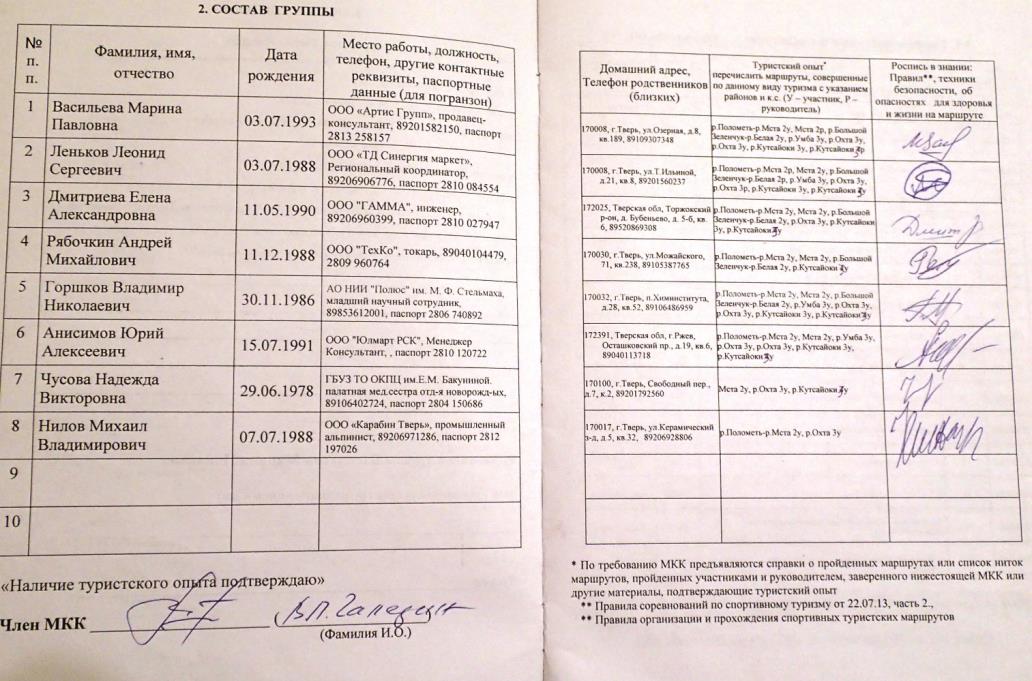 2. СОСТАВ ГРУППЫ
№
п.
п.
Фамилия, имя,
отчество
Дата
рождения
Место работы, должность,
телефон, другие контактные
реквизиты, паспортные
данные (для погранзон)
1
Васильева Марина
Павловна
03.07.1993
ООО «Артис Групп», продавец-
консультант, 89201582150, паспорт
2813 258157
2
Леньков Леонид
Сергеевич
03.07.1988
ООО «ТД Синергия маркет»,
Региональный координатор,
89206906776, паспорт 2810 084554
3
Дмитриева Елена
Александровна
11.05.1990
ООО "ГАММА", инженер,
89206960399, паспорт 2810 027947
4
Рябочкин Андрей
Михайлович
11.12.1988
ООО "ТехКо", токарь, 89040104479,
2809 960764
5
Горшков Владимир
Николаевич
30.11.1986
АО НИИ "Полюс" им. М. Ф. Стельмаха,
младший научный сотрудник,
89853612001, паспорт 2806 740892
6
Анисимов Юрий
Алексеевич
15.07.1991
ООО "Юлмарт РСК", Менеджер
Консультант, , паспорт 2810 120722
7
Чусова Надежда
Викторовна
29.06.1978
ГБУЗ ТО ОКПЦ им.Е.М. Бакуниной.
палатная мед.сестра отд-я новорожд-ых,
89106402724, паспорт 2804 150686
8
Нилов Михаил
Владимирович
07.07.1988
ООО «Карабин Тверь», промышленный
альпинист, 89206971286, паспорт 2812
197026
9
10
«Наличие туристского опыта подтверждаю»
Член МКК
(Фамилия И.О.)
Домашний адрес,
Телефон родственников
(близких)
Туристский опыт*
перечислить маршруты, совершенные
по данному виду туризма с указанием
районов и к.с. (У – участник, Р –
руководитель)
Роспись в знании:
Правил**, техники
безопасности, об
опасностях для здоровья
и жизни на маршруте
170008, г.Тверь, ул.Озерная, д.8,
кв.189, 89109307348
р.Полометь-р.Мста 2у, Мста 2р, р.Большой
Зеленчук-р.Белая 2у, р.Умба 3у, р.Охта 3у,
р.Охта 3у, р.Кутсайоки 3у, р.Кутсайоки р
170008, г.Тверь, ул.Т.Ильиной,
д.21, кв.8, 89201560237
р.Полометь-р.Мста 2р, Мста 2у, р.Большой
Зеленчук-р.Белая 2р, р.Умба 3у, р.Охта 3у,
р.Охта 3р, р.Кутсайоки 3у, р.Кутсайоки у
172025, Тверская обл, Торжокский
р-он, д. Бубеньево, д. 5-б, кв.
6, 89520869308
р.Полометь-р.Мста 2у, Мста 2у, р.Большой
Зеленчук-р.Белая 2у, р.Охта 3у, р.Кутсайоки
3у, р.Кутсайоки у
170030, г.Тверь, ул.Можайского,
71, кв.238, 89105387765
р.Полометь-р.Мста 2у, Мста 2у, р.Большой
Зеленчук-р.Белая 2у, р.Кутсайоки у
170032, г.Тверь, п.Химинститута,
д.28, кв.52, 89106486959
р.Полометь-р.Мста 2у, Мста 2у, р.Большой
Зеленчук-р.Белая 2у, р.Умба 3у, р.Охта 3у,
р.Охта 3у, р.Кутсайоки 3у, р.Кутсайоки у
172391, Тверская обл, г.Ржев,
Осташковский пр., д.19, кв.6,
89040113718
р.Полометь-р.Мста 2у, Мста 2у, р.Умба 3у,
р.Охта 3у, р.Охта 3у, р.Кутсайоки 3у,
р.Кутсайоки у
170100, г.Тверь, Свободный пер.,
д.7, к.2, 89201792560
Мста 2у, р.Охта 3у, р.Кутсайоки у
170017, г.Тверь, ул.Керамический
з-д, д.5, кв.32, 89206928806
р.Полометь-р.Мста 2у, р.Охта 3у
* По требованию МКК предъявляются справки о пройденных маршрутах или список ниток
маршрутов, пройденных участниками и руководителем, заверенного нижестоящей МКК или
другие материалы, подтверждающие туристский опыт
** Правила соревнований по спортивному туризму от 22.07.13, часть 2.,
** Правила организации и прохождения спортивных туристских маршрутов